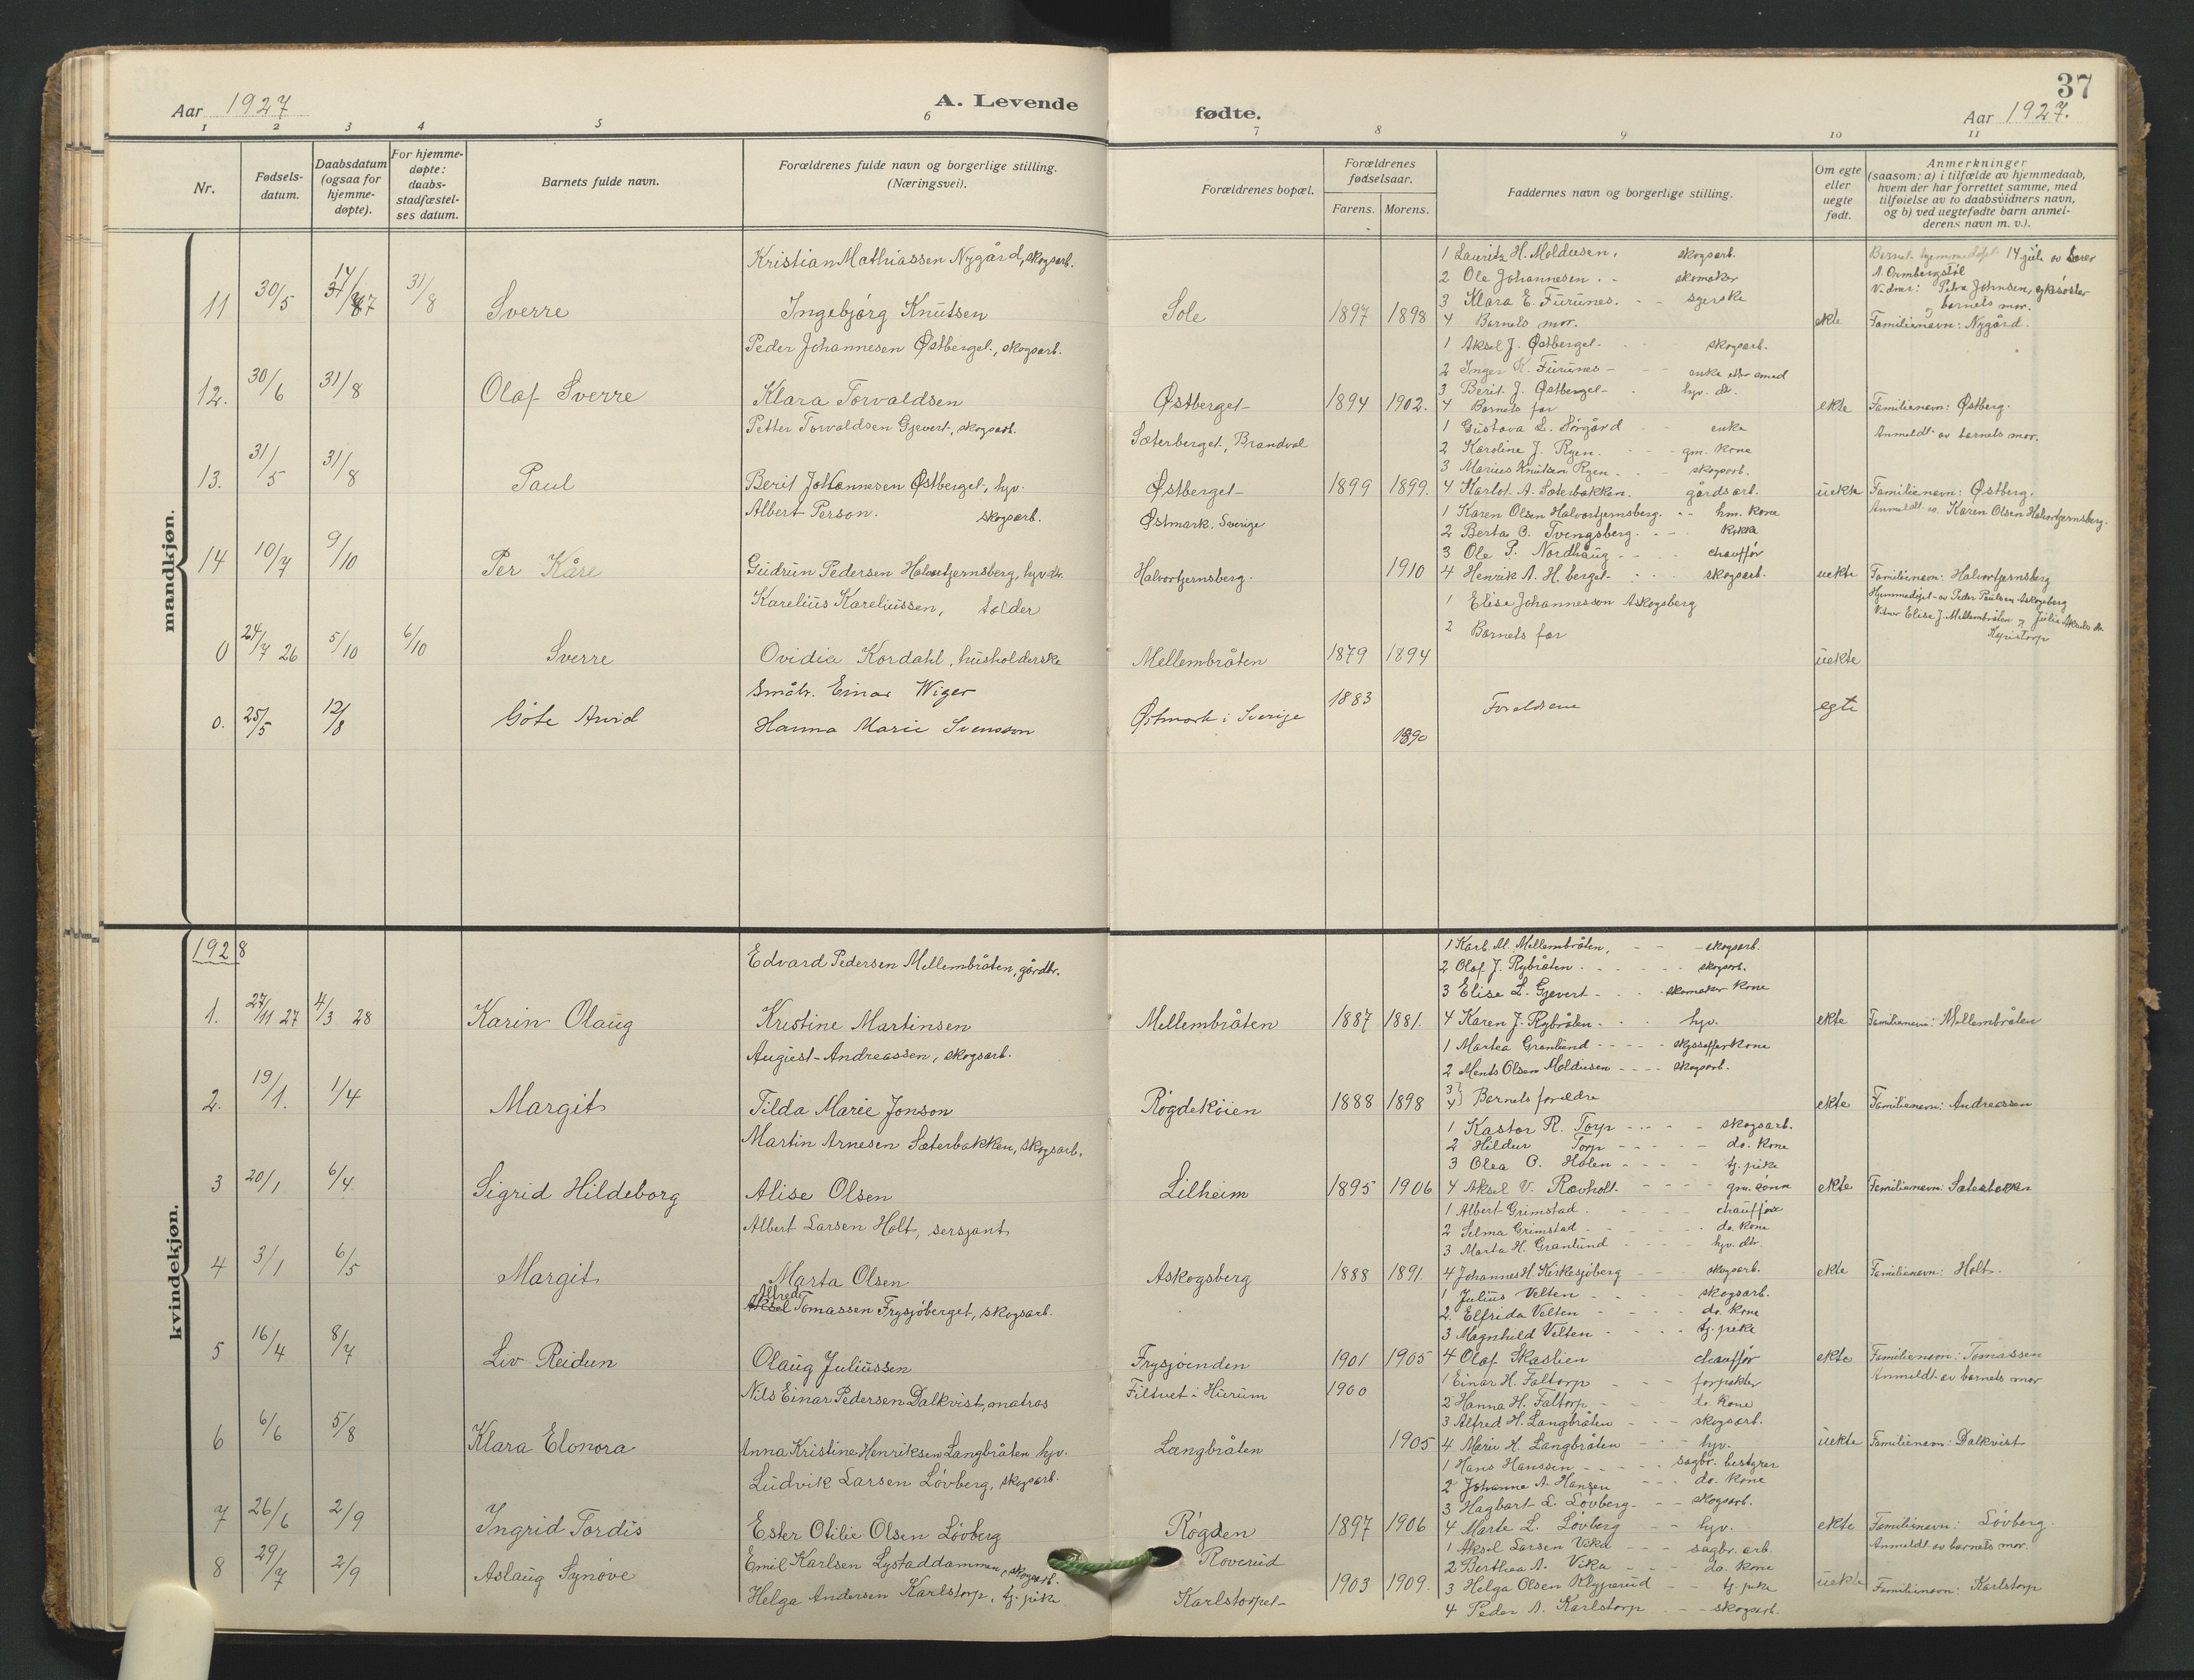 37
Aar 1927
A. Levende
fødte.
Aar 1927.
1 2 3 4 5 6 7 8 9 10 11
Nr.
Fødselsdatum.
Daabsdatum (ogsaa for hjemmedøpte).
For hjemmedøpte: daabsstadfæstelses datum.
Barnets fulde navn.
Forældrenes fulde navn og borgerlige stilling. (Næringsvei).
Forældrenes bopæl.
Forældrenes fødselsaar.
Farens. Morens.
Faddernes navn og borgerlige stilling.
Om egte eller uegte født.
Anmerkninger
(saasom: a) i tilfælde av hjemmedaab, hvem der har forrettet samme, med tilføielse av to daabsvidners navn, og b) ved uegtefødte barn anmelderens navn m. v.).
mandkjøn.
Kristian Mathiassen Nygård, skogsarb.
11 30/5 14/7 31/8 Sverre Ingebjørg Knutsen Sole 1897 1898 ekte
1 Lauritz H. Moldusen, skogsarb.
2 Ole Johannesen skomaker
3 Klara E. Furunes. syerske
4 Barnets mor.
Barnet hjemmedøpt 14 juli av lærer
A. Ormbergstøl
Vidner: Petra Johnsen, sykesøster
og barnets mor.
Familienavn: Nygård.
Peder Johannesen Østberget, skogsarb.
12. 30/6 31/8 Olaf Sverre Klara Torvaldsen Østberget 1894 1902. ekte Familienavn: Østberg.
1 Aksel J. Østberget skogsarb.
2 Inger K. Furunes enke
3 Berit J. Østberget hyv. dt.
4 Barnets far
Petter Torvaldsen Gjevert, skogsarb. Sæterberget, Brandval
13. 31/5 31/8 Paul Berit Johannesen Østberget, hyv. Østberget 1899 1899. uekte
1 Gustava L. Sørgård enke
2 Karoline J. Ryen. gm. kone
3 Marius Knutsen Ryen skogsarb.
4 Karlot A. Sæterbakken. gårdsarb.
Anmeldt av barnets mor.
Familienavn: Østberg.
Albert Person. skogsarb. Østmark. Sverige
14 10/7 9/10 Per Kåre Gudrun Pedersen Halvortjernsberg, hyv dtr. Halvortjernsberg. 1910 uekte
1 Karen Olsen Halvortjernsberg. hm. kone
2 Berta O. Tvengsberg. kokka
3 Ole P. Nordhaug chauffør
4 Henrik A. H. berget skogsarb.
Anmeldt av Karen Olsen Halvortjernsberg.
Familienavn: Halvortjernsberg
Karelius Kareliussen, tolder
0 24/7 26 5/10 6/10 Sverre Ovidia Kordahl, husholderske Mellembråten 1879 1894 uekte
1 Elise Johannesson Askogsberg
2 Barnets far
Hjemmedøpt av Peder Paulsen Askogsberg
Vitner Elise J. Mellembråten og Julia
Småbr. Einar Wiger
0. 25/5 12/8 Göte Arvid Hanna Marie Svensson Østmark i Sverige 1883 1890 Foreldrene egte
kvindekjøn.
1928
Edvard Pedersen Mellembråten, gårdbr.
1. 27/11 27 4/3 28 Karin Olaug Kristine Martinsen Mellembråten 1887 1881. ekte Familienavn: Mellembråten
1 Karl. M. Mellembråten, skogsarb.
2 Olaf J. Rybråten skogsarb.
3 Elise L. Gjevert skomaker kone
4 Karen J. Rybråten hyv.
August Andreassen, skogsarb.
2. 19/1. 1/4 Margit Tilda Marie Jonson Røgdekøien 1888 1898 ekte Familienavn: Andreassen
1 Martea Granlund kone
2 Ments Olsen Moldusen skogsarb.
3 4 Barnets forældre
Martin Arnesen Sæterbakken, skogsarb.
3 20/1 6/4 Sigrid Hildeborg Alise Olsen Lilheim 1895 1906 ekte Familienavn: Sæterbakken
1 Kastor R. Torp skogsarb.
2 Hildur Torp do. kone
3 Olea O. Holen tj. pike
4 Aksel V. Rævholt gm. sønn
Albert Larsen Holt, sersjant
4 3/1 6/5 Margit Marta Olsen Askogsberg 1888 1891. ekte Familienavn: Holt.
1 Albert Grimstad chauffør
2 Selma Grimstad do. kone
3 Marta H. Granlund hyv. dtr.
4 Johannes H. Kirkesjøberg skogsarb.
Alfred
Aksel Tomassen Frysjøberget, skogsarb.
5 16/4 8/7 Liv Reidun Olaug Juliussen Frysjøenden 1901 1905 ekte Familienavn: Tomassen
1 Julius Velten skogsarb.
2. Elfrida Velten do. kone
3 Magnhild Velten tj. pike
4 Olaf Skaslien chauffør
Nils Einar Pedersen Dalkvist, matros Filtvet i Hurum 1900
6 6/6 5/8 Klara Elonora Anna Kristine Henriksen Langbråten hyv. Langbråten 1905 uekte
1 Einar H. Faltorp forpakter
2 Hanna H. Faltorp do. kone
3 Alfred H. Langbråten skogsarb.
4 Marie H. Langbråten hyv.
Anmeldt av barnets mor
Familienavn: Dalkvist
Ludvik Larsen Løvberg, skogsarb.
7 26/6 2/9 Ingrid Tordis Ester Otilie Olsen Løvberg Røgden 1897 1906 ekte Familienavn: Løvberg.
1 Hans Hanssen sagbr. bestyrer
2 Johanna A. Hansen do. kone
3 Hagbart L. Løvberg skogsarb.
4 Marte L. Løvberg hyv.
Emil Karlsen Lystaddammen, skogsarb. Roverud
8 29/7 2/9 Aslaug Synøve Helga Andersen Karlstorp, tj. pike Karlstorpet 1903 1909. uekte
1 Aksel Larsen Vika sagbr. arb.
2 Berthea A. Vika do. kone
3 Helga Olsen tj. pike
4 Peder A. Karlstorp skogsarb.
Anmeldt av barnets mor.
Familienavn: Karlstorp